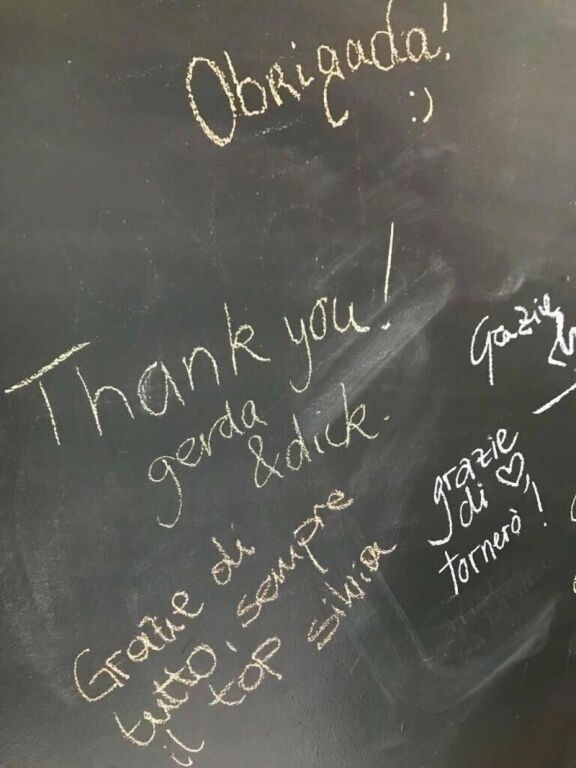 Obrigada!
:)
Thank you!
gerda
&dick.
Grazie
grazie
di ♡,
tornerò!
Grazie di
tutto, sempre
il top silvia